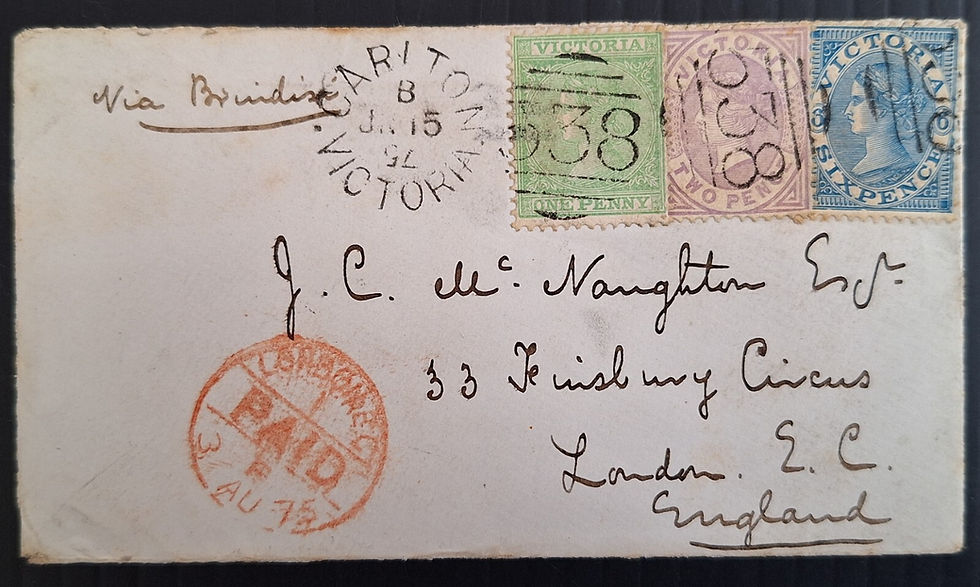 Via Brindisi
CARLTON
B
JN 15
VICTORIA
VICTORIA
ONE PENNY
938
VICTORIA
TWO PENCE
938
VICTORIA
6
SIXPENCE
J. C. Mc. Naughton Esqr.
33 Finsbury Circus
London. E. C.
England
LONDON E C
PAID
3
AU 75